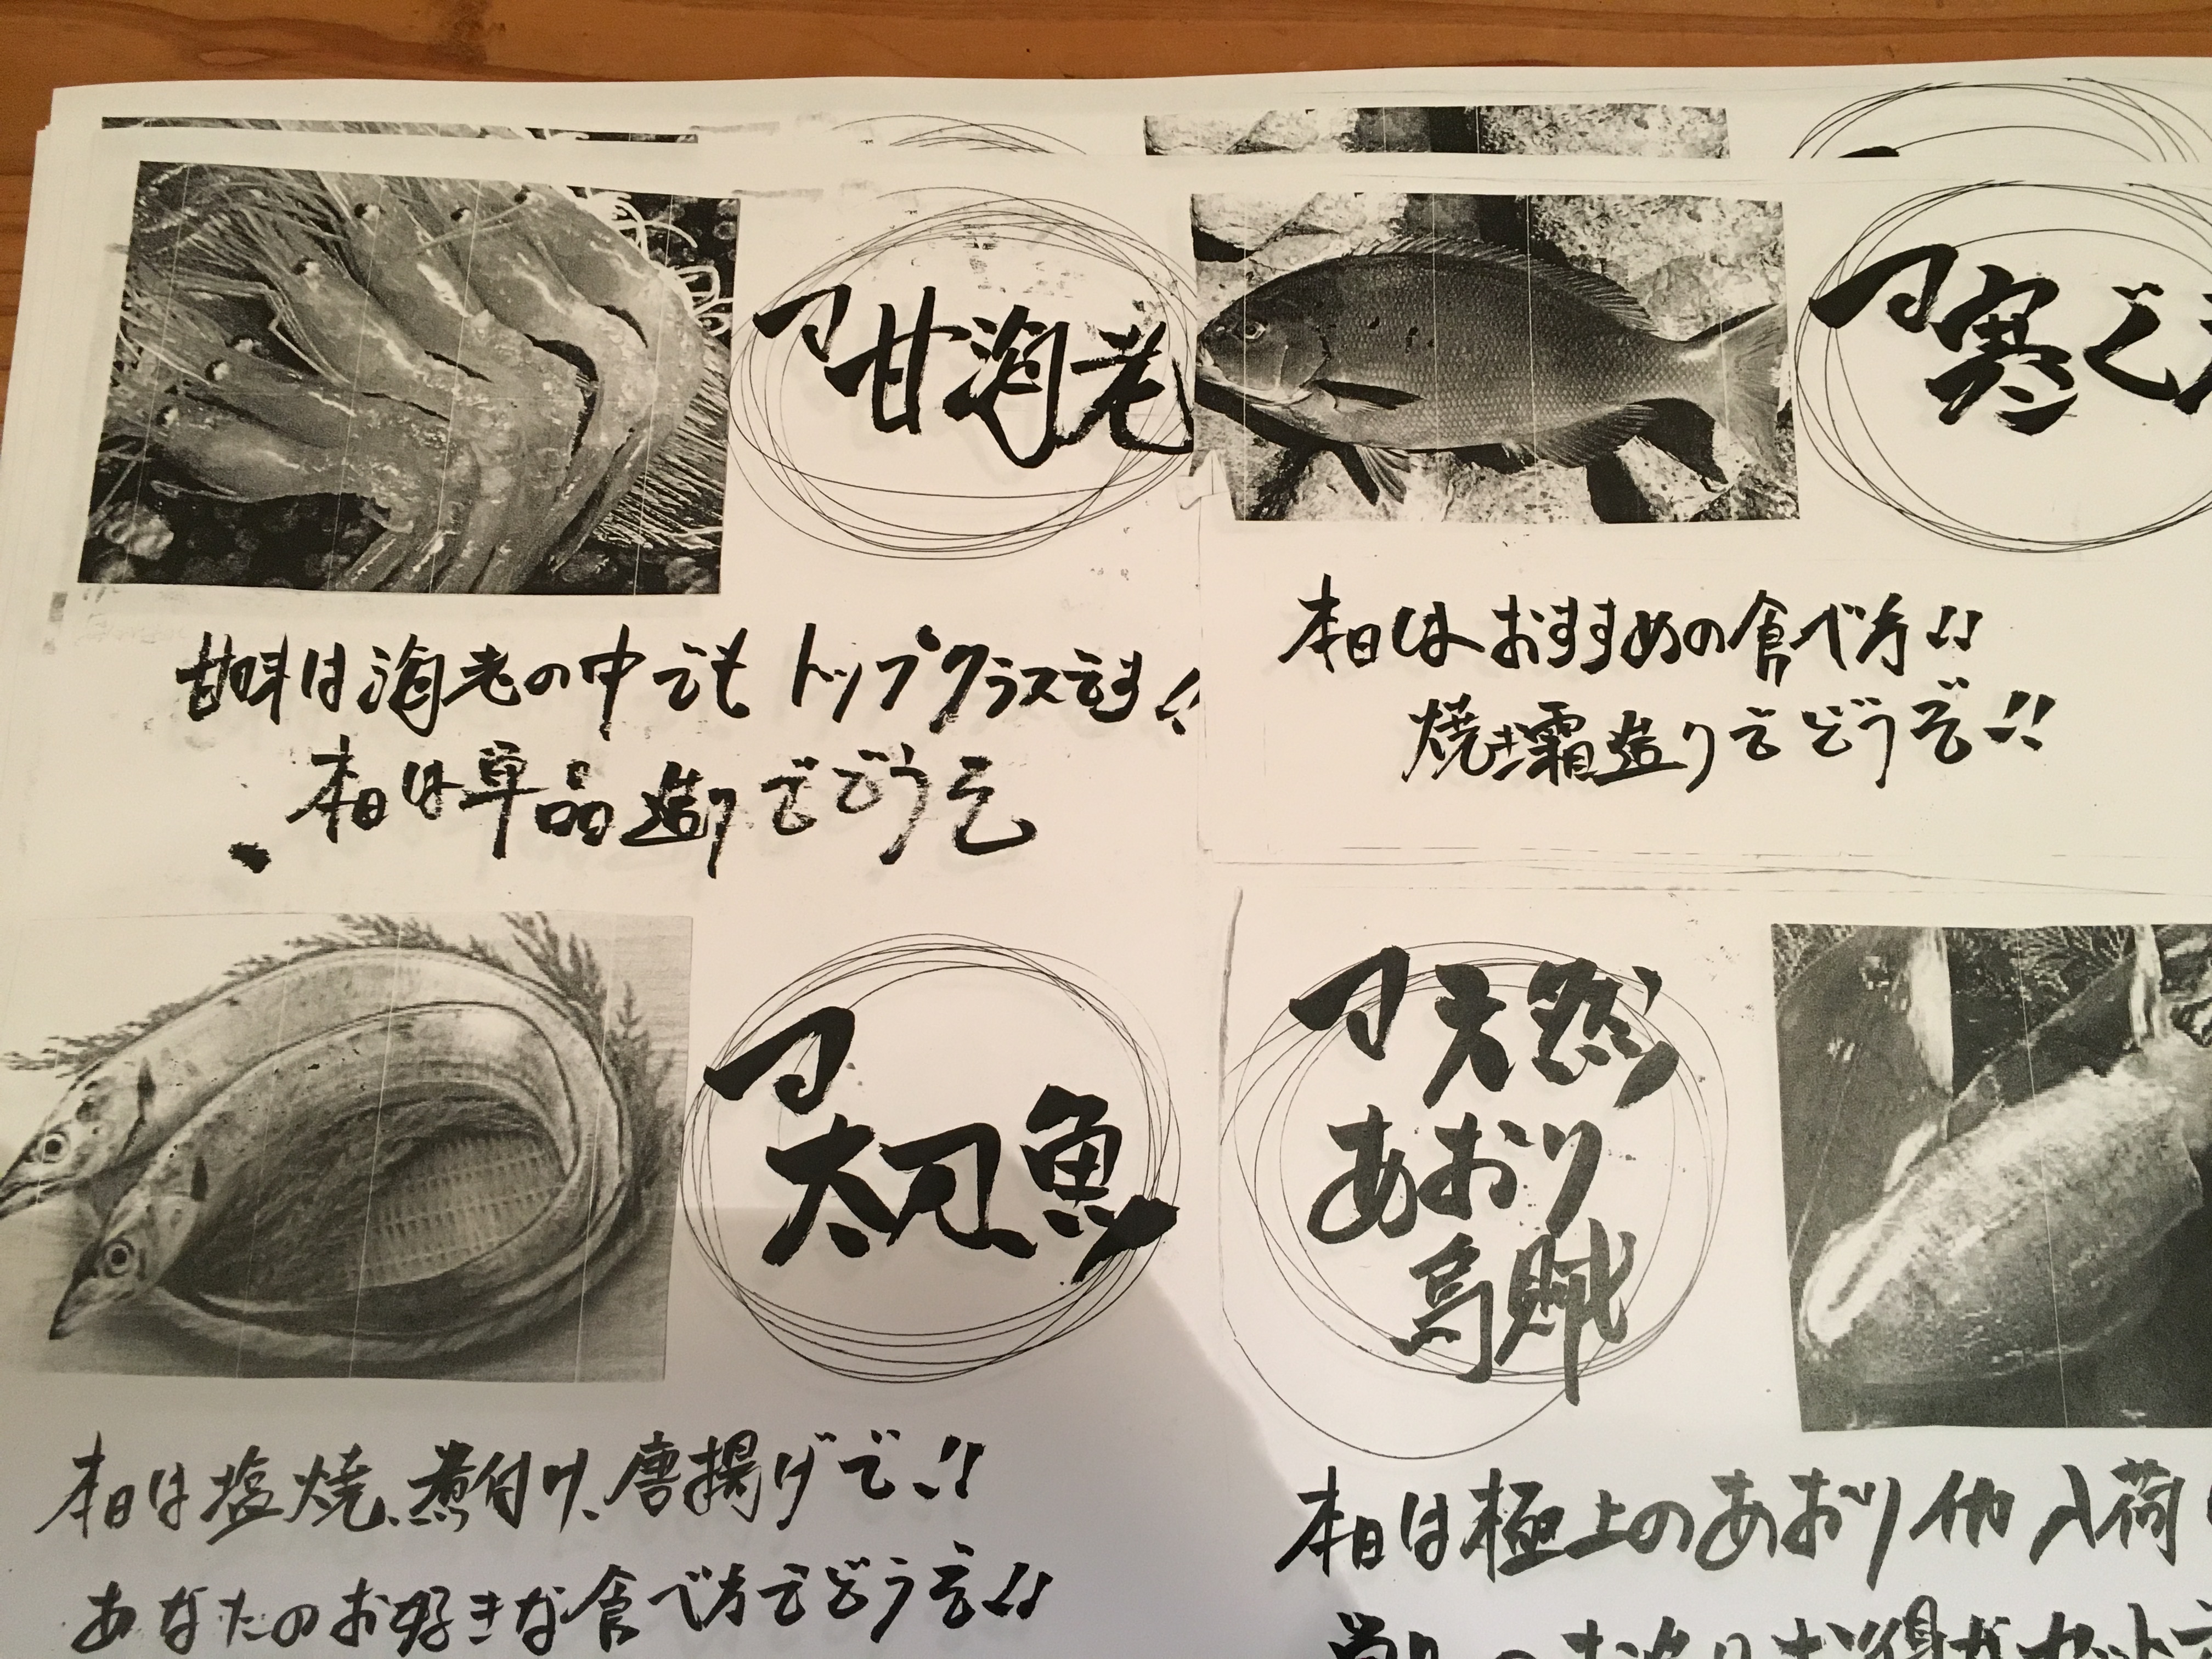 甘海老
甘味は海老の中でもトップクラスです!!
本日は単品造りでどうぞ
寒ぐ
本日はおすすめの食べ方!!
焼き霜造りでどうぞ!!
太刀魚
本日は塩焼、煮付け、唐揚げで!!
あなたのお好きな食べ方でどうぞ!!
天然
あおり
烏賊
本日は極上のあおり イカ 入荷